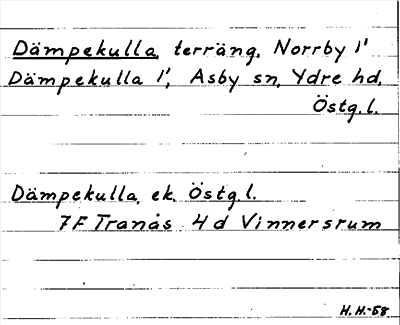 Dämpekulla, terräng, Norrby 1'
Dämpekulla 1', Asby sn, Ydre hd,
Östg.l.
Dämpekulla, ek. Östg.l.
7F Tranås 4d Vinnersrum
H.H.-58